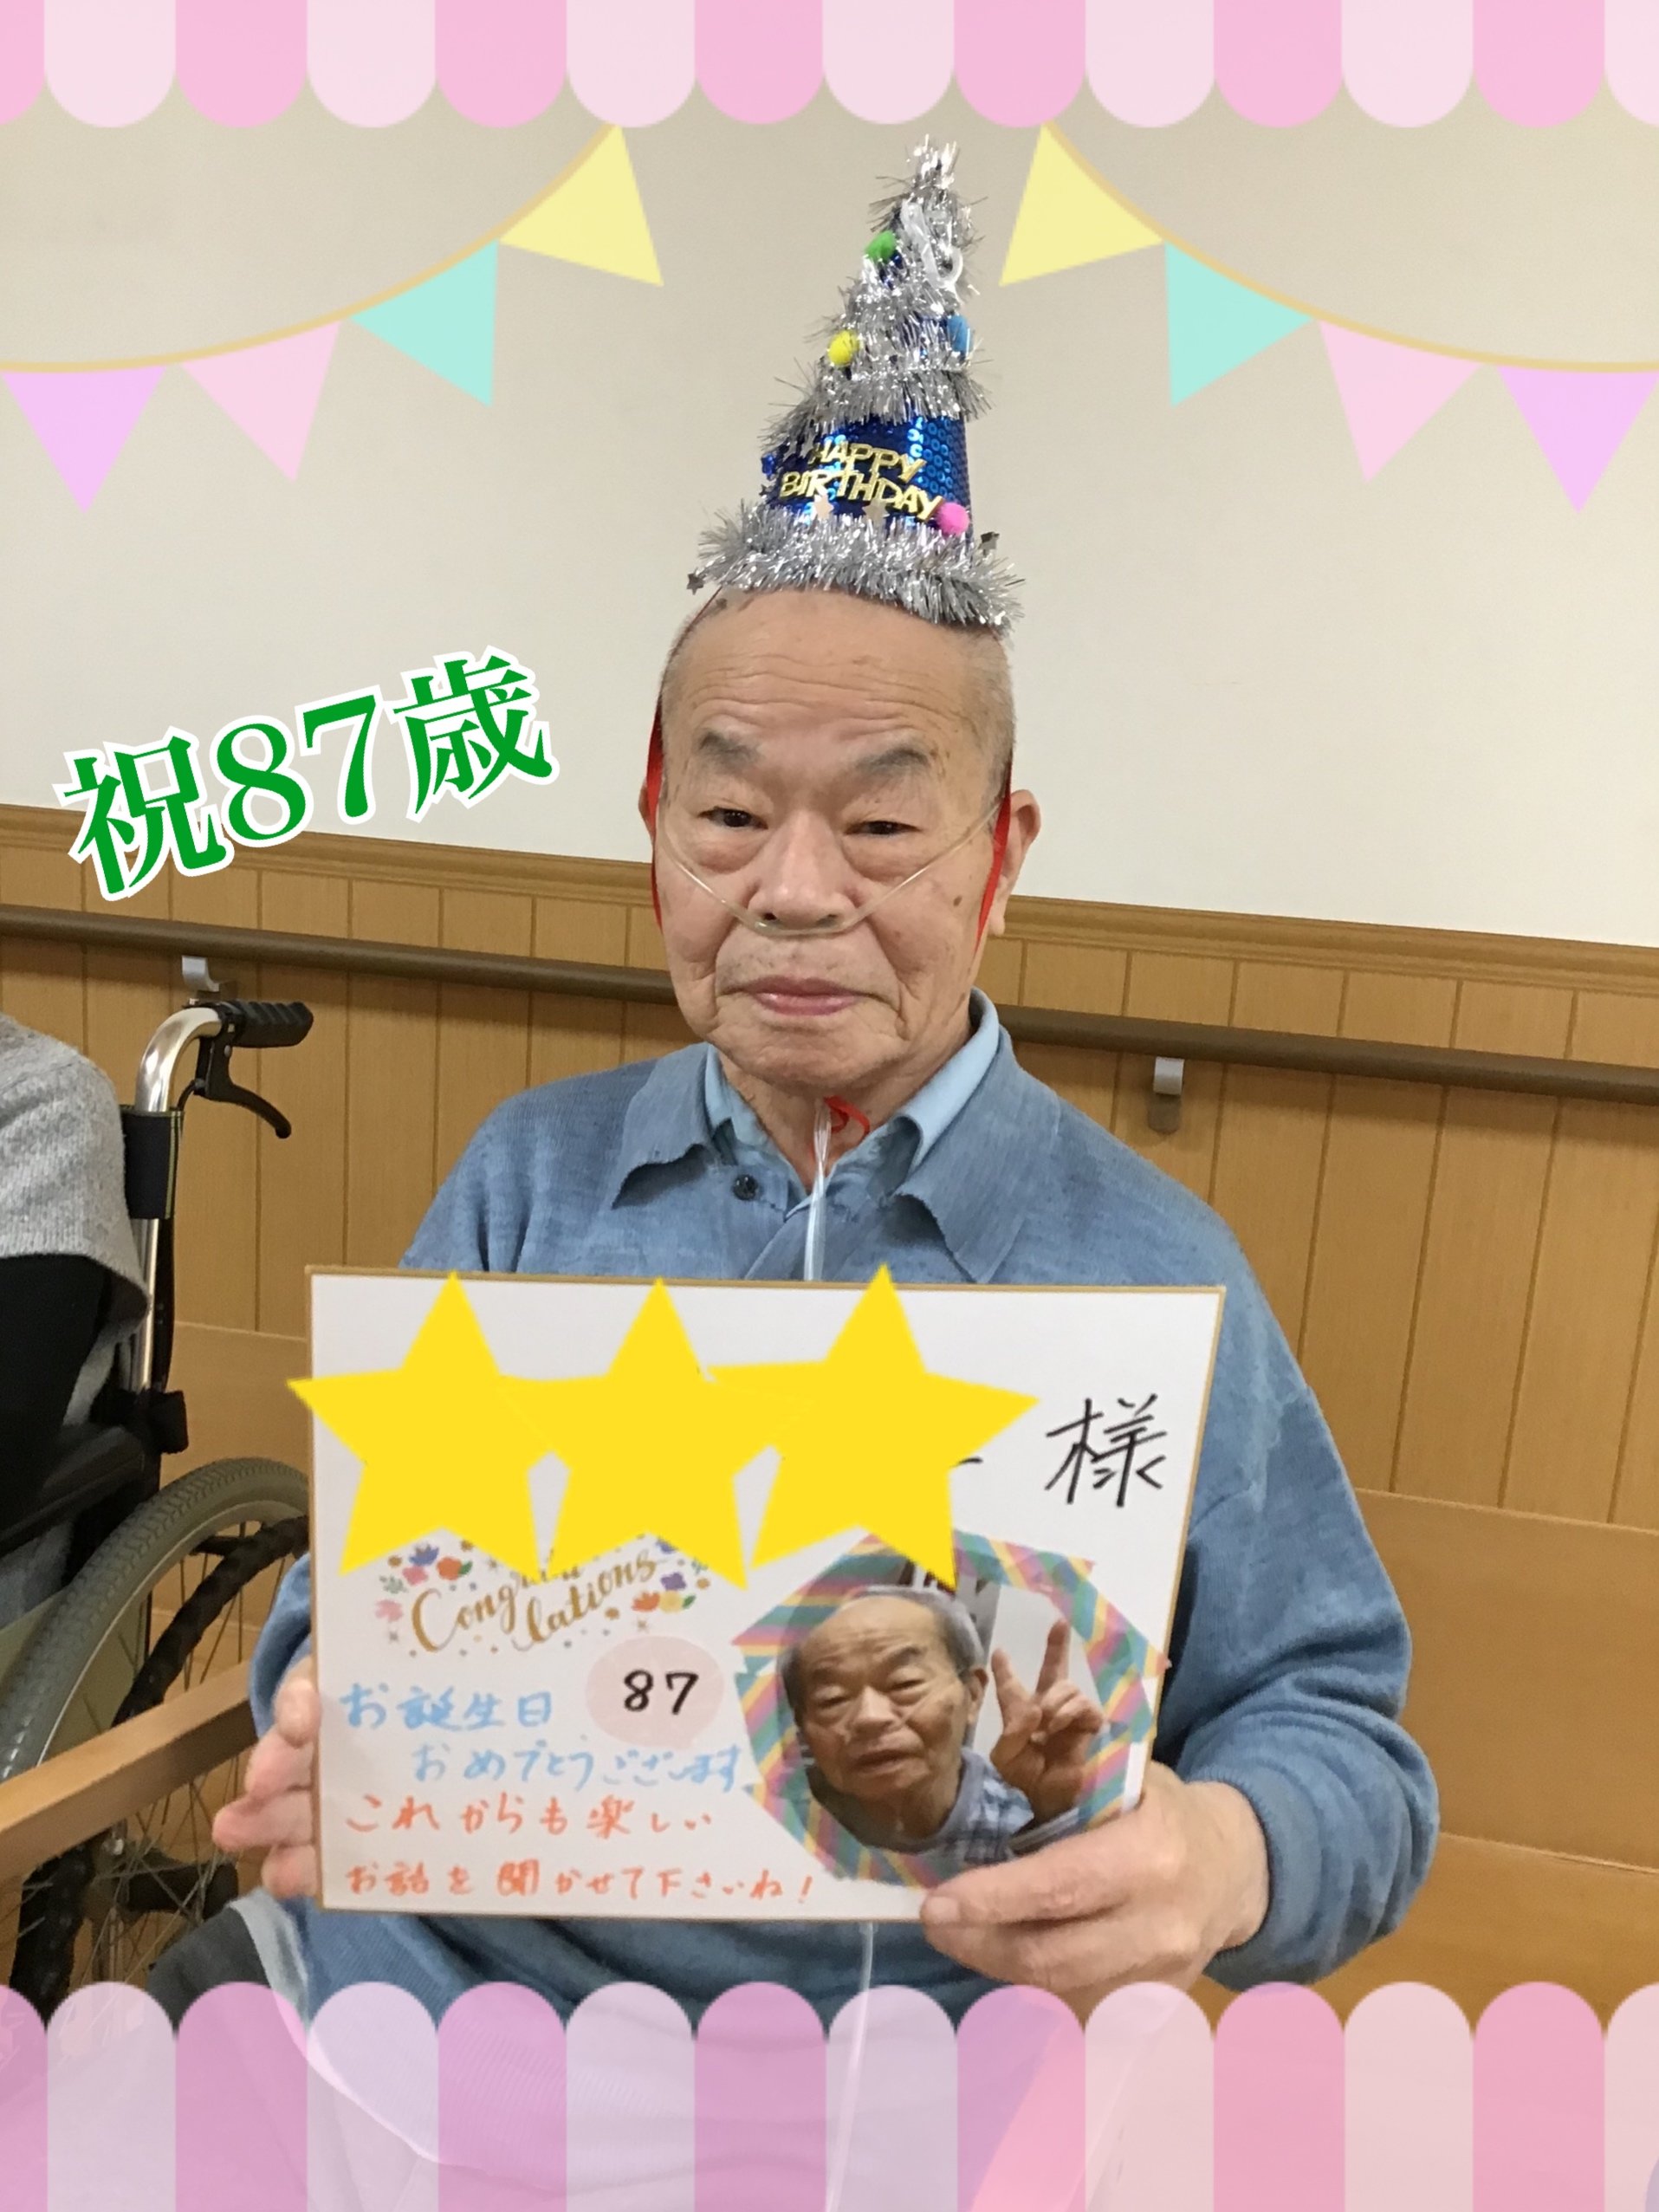 HAPPY
BIRTHDAY
祝87歳
様
Congratulations
87
お誕生日
おめでとうございます。
これからも楽しい
お話を聞かせて下さいね!